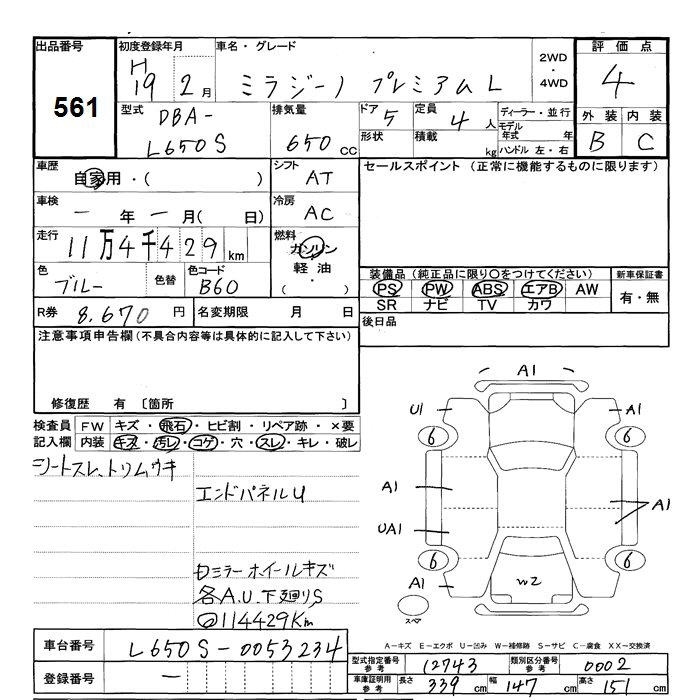 出品番号 561
初度登録年月 H19 2月
車名・グレード ミラジーノ プレミアムL
2WD・4WD
評価点 4
型式 DBA-L650S
排気量 650cc
ドア 5
形状
定員 4人
積載 kg
ディーラー・並行
モデル年式 年
ハンドル 左・右
外装 内装
B C
車歴 自家用・( )
シフト AT
セールスポイント (正常に機能するものに限ります)
車検 一年一月( 日)
冷房 AC
走行 11万4千429km
燃料 ガソリン
軽油
( ・ )
色 ブルー
色替
色コード B60
装備品(純正品に限り○をつけてください)
新車保証書
PS PW ABS エアB AW
SR ナビ TV カワ
有・無
R券 8,670円
名変期限 月 日
後日品
注意事項申告欄(不具合内容等は具体的に記入して下さい)
修復歴 有〔箇所 〕
検査員記入欄
FW キズ・飛石・ヒビ割・リペア跡・×要
内装 キズ・汚レ・コゲ・穴・スレ・キレ・破レ
シートスレ、トリムウキ
エンドパネルU
ミラーホイールキズ
各A.U.下廻りS
114429Km
A1
U1 A1
6 6
A1
A1
UA1
6 6
A1
W2
スペア
A-キズ E-エクボ U-凹み W-補修跡 S-サビ C-腐食 XX-交換済
車台番号 L650S-0053234
登録番号 一
型式指定番号参考 12743
類別区分番号参考 0002
車庫証明用参考 長さ 339cm 幅 147cm 高さ 151cm